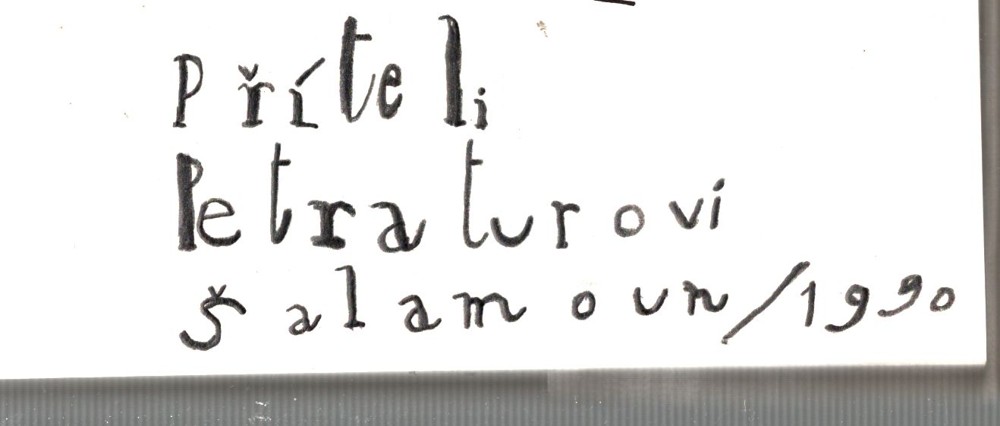 Příteli
Petraturovi
Šalamoun/1990